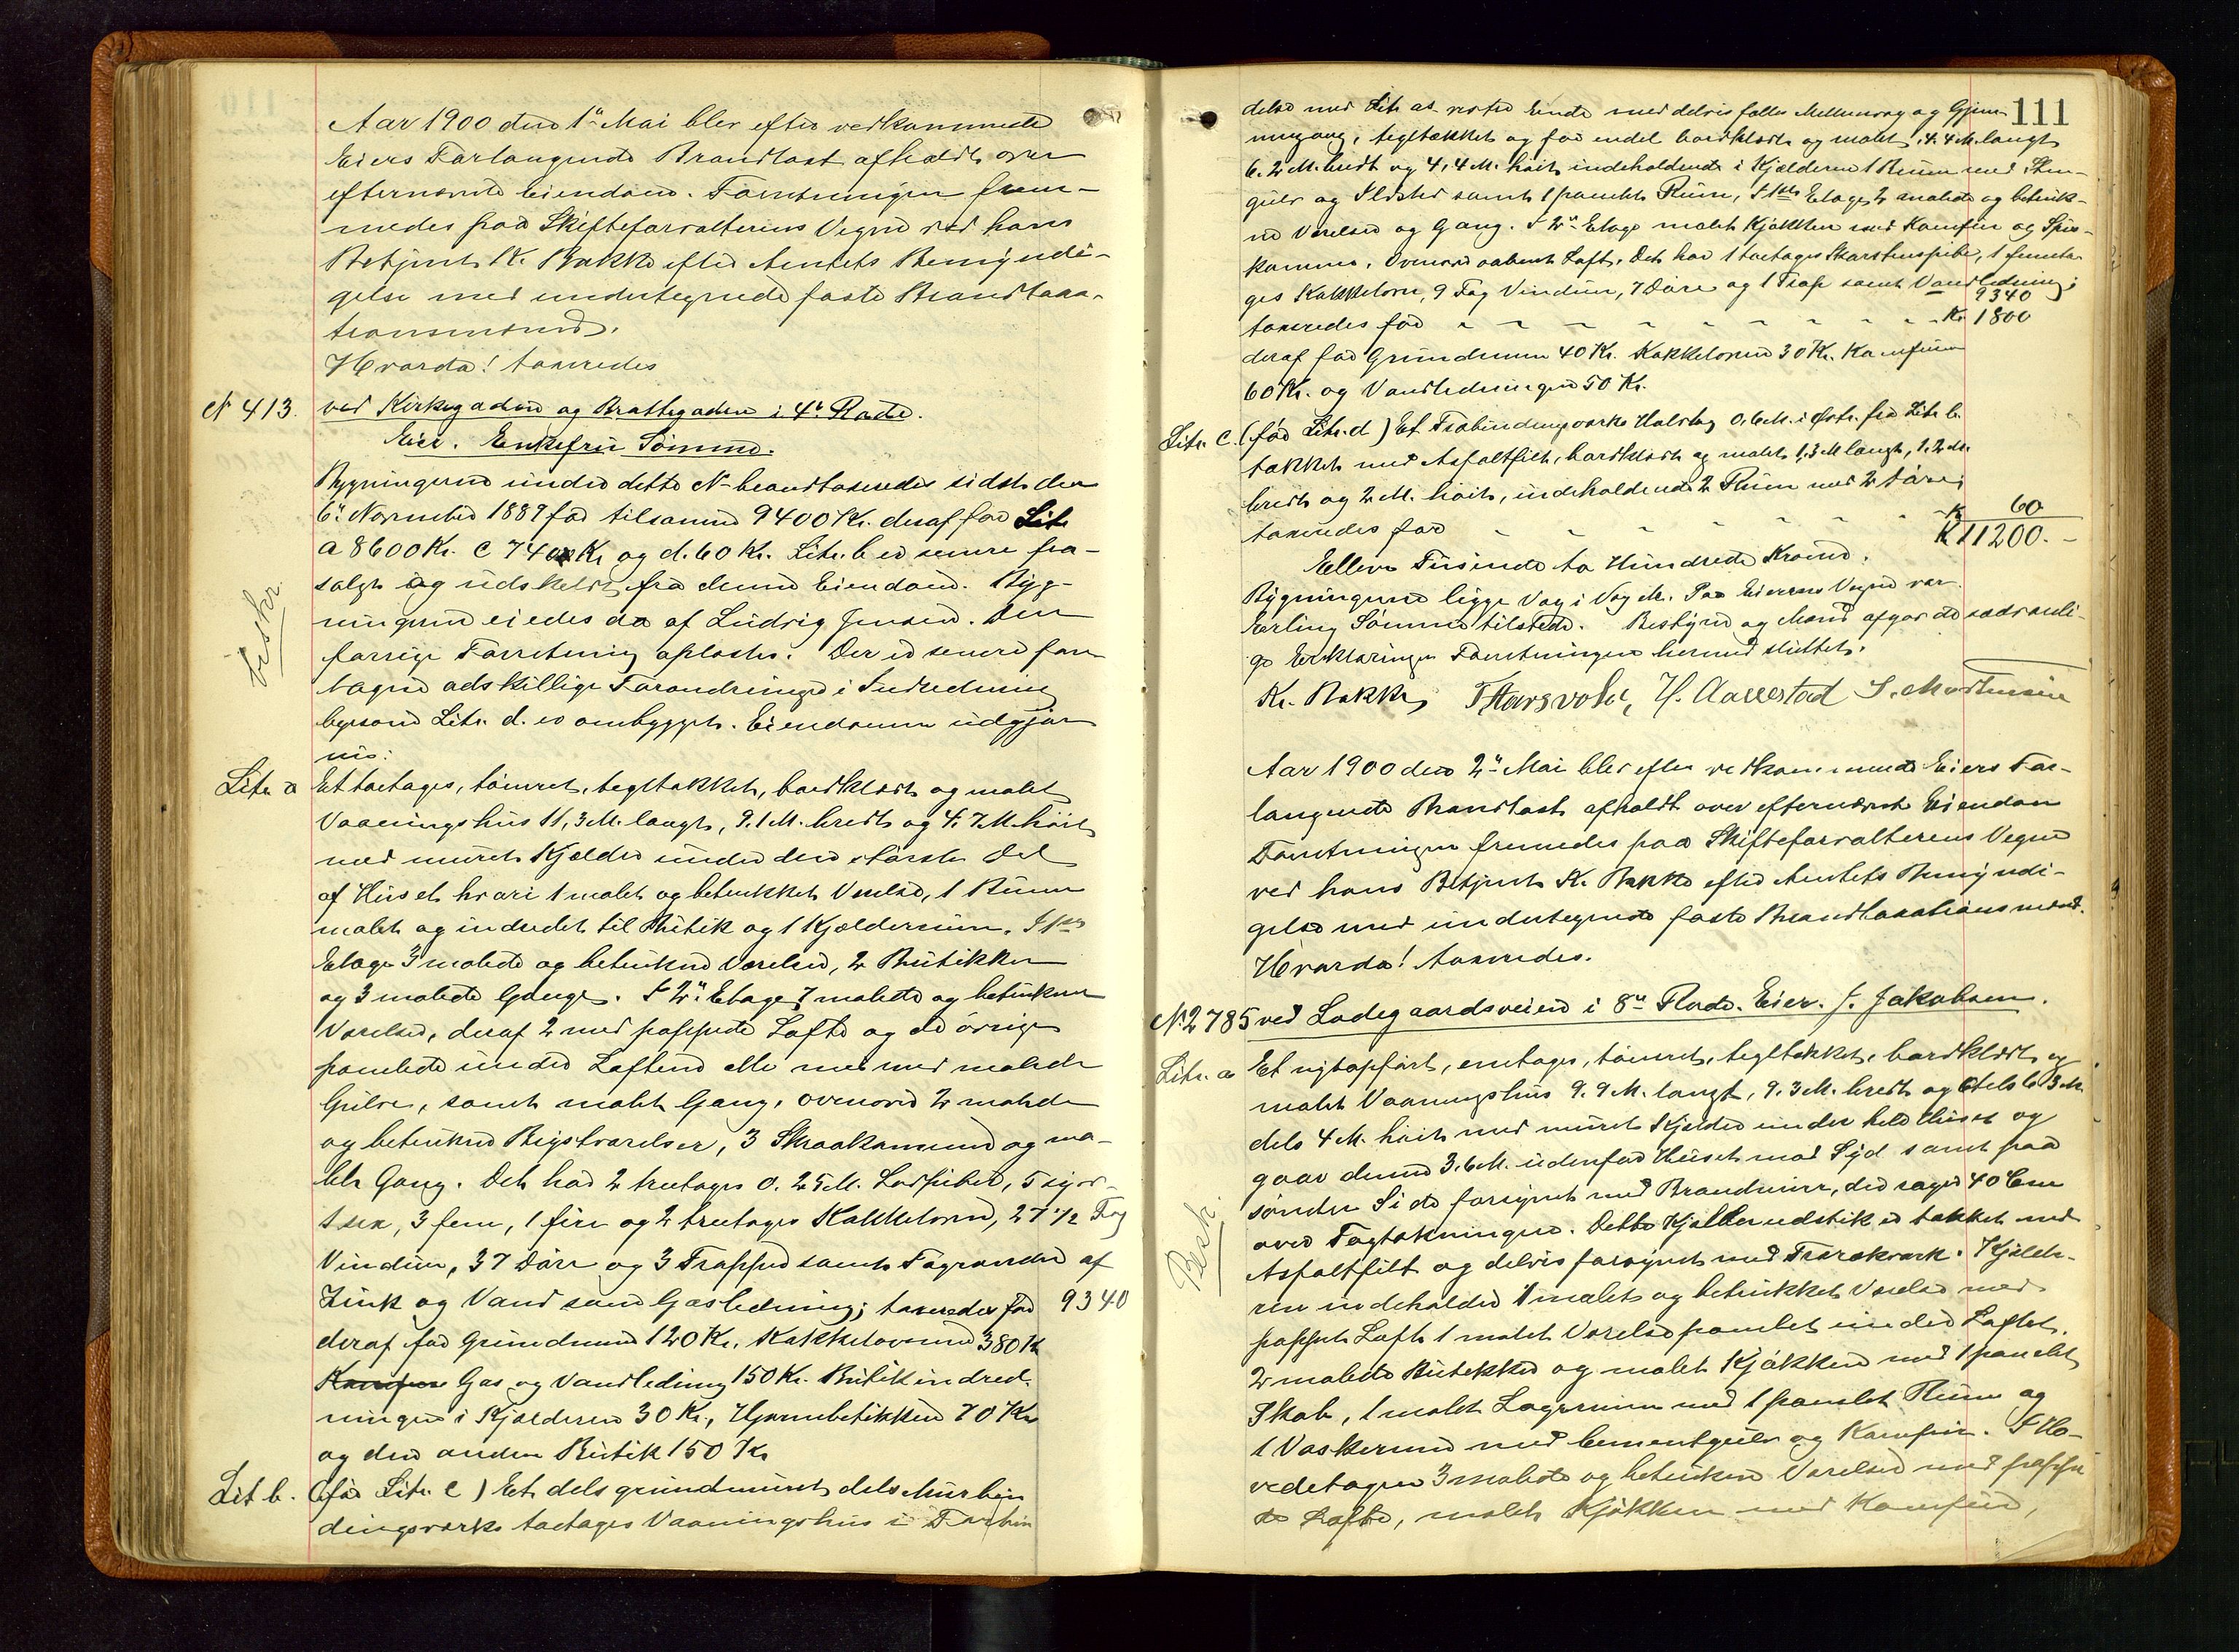 Aar 1900 den 1ᵗᵉ Mai blev efter vedkommende
Eiers Forlangende Brandtaxt afholdt over
efternævnte Eiendom. Forretningen frem-
medes paa Skifteforvalterens Vegne ved hans
Betjent K. Bakke efter Amtets Bemyndi-
gelse med undertegnede faste Brandtaxa-
tionsmænd.
Hvorda! taxeredes
N 413. ved Kirkegaden og Brattegaden i 4ᵈᵉ Rode.
Eier. Enkefru Sømme.
Bygningerne under dette N- brandtaxeredes sidst den
6ᵗᵉ November 1889 for tilsammen 9400 Kr. deraf for Litr
a 8600 Kr. c 740 Kr og d. 60 Kr. Litr. b er senere fra-
solgt og udskilt fra denne Eiendom. Byg-
ningerne eiedes da af Ludvig Jensen. Den
forrige Forretning oplæstes. Der er senere fore-
tagne adskillige Forandringer i Indredning
ligesom Litr. d. er ombygget. Eiendommen udgjør
nu:
beskr
Litr a Et toetages, tømret, tegltækket, bordklædt og malet
Vaaningshus 11,3 M. langt, 9.1 M. bredt og 4.7 M. høit
med muret Kjelder under den største Del
af Huset hvori 1 malet og betrukket Værelse, 1 Rum
malet og indredet til Butik og 1 Kjælderrum. I 1ˢᵗᵉ
Etage 3 malede og betrukne Værelser, 2 Butikker
og 3 malede Gange. I 2ᵈᵉⁿ Etage 7 malede og betrukne
Værelser, deraf 2 med pappede Lofte og de øvrige
panelede under Loftene alle med malede
Gulve, samt malet Gang, ovenover 2 malede
og betrukne Kvistværelser, 3 Skraakammere og ma-
let Gang. Det har 2 treetages 0.25 M. Lodpiber, 5 syv-
1 sex, 3 fem, 1 fire og 2 treetages Kakkelovne, 27 ½ Fag
Vinduer, 37 Døre og 3 Trapper samt Tagrender af
Zink og Vand samt Gasledning; taxeredes for 9340
deraf for Grundmuren 120 Kr. Kakkelovnene 380 Kr
Komfure Gas og Vandledning 150 Kr. Butikindred-
ningen i Kjælderen 30 Kr., Hjørnebutikken 70 Kr
og den anden Butik 150 Kr
Lit b. (før Litr. c) Et dels grundmuret dels Murbin
dingsværks toetages Vaaningshus i Forbin
111
delse med Litr a's østre Ende med delvis fælles Mellemvæg og Gjen-
nemgang, tegltækket og for endel bordklædt og malet, 4.4 M. langt
6.2 M. bredt og 4,4 M. høit indeholdende i Kjælderen 1 Rum med Sten-
gulv og Ildsted samt 1 panelet Rum, I 1ˢᵗᵉ Etage 2 malede og betruk-
ne Værelser og Gang. I 2ᵈᵉⁿ Etage malet Kjøkken med Komfur og Spis-
kammer. Ovenover aabent Loft. Det har 1 toetages Skorstenspibe, 1 femeta-
ges Kakkelovn, 9 Fag Vinduer, 7 Døre og 1 Trap samt Vandledning;
9340
taxeredes for - - - - - - - - - Kr. 1800
deraf for Grundmuren 40 Kr. Kakkelovnen 30 Kr. Komfuren
60 Kr. og Vandledningen 50 Kr.
Litr. c. (før Litr. d) Et Træbindingsværks Halvtag 0,6 M. i Østr. fra Litr b.
tækket med Asfaltfilt, bordklædt og malet 1,3 M langt, 1.2 M.
bredt og 2 M. høit, indeholdende 2 Rum med 2 Døre;
taxeredes for - - - - - - - - Kr 60
Kr 11200.-
Elleve Tusinde to Hundrede Kroner.
Bygningerne ligge Væg i Væg M. Paa Eierens Vegne var
Erling Sømme tilstede. Bestyrer og Mænd afgav de sædvanli-
ge Erklæringer Forretningen hermed sluttet.
K. Bakke, T Harsvold, H. Aarrestad S. Mortensen
Aar 1900 den 2ᵈᵉⁿ Mai blev efter vedkommende Eiers For-
langende Brandtaxt afholdt over efternævnte Eiendom
Forretningen fremmedes paa Skifteforvalterens Vegne
ved hans Betjent K. Bakke efter Amtets Bemyndi-
gelse med undertegnede faste Brandtaxationsmænd.
Hvorda! taxeredes.
N. 2785 ved Ladegaardsveien i 8ᵈᵉ Rode. Eier. J. Jakobsen.
Litr. a Et nyopført, enetages, tømret, tegltækket, bordklædt og
malet Vaaningshus 9.9 M. langt, 9.3 M. bredt og dels 6.3 M.
dels 4 M. høit med muret Kjelder under hele Huset og
gaar denne 3.6 M. udenfor Huset mod Syd samt paa
søndre Side forsynet med Brandmur, der rager 40 Ctm
over Tagtækningen. Dette Kjelderudstik er tækket med
Asfaltfilt og delvis forsynet med Træverk. Kjelde-
ren indeholder 1 malet og betrukket Værelse med
pappet Loft 1 malet Værelse panelet under Loftet.
2 malede Butikker og malet Kjøkken med 1 panelet
Skab, 1 malet Lagerrum med 1 panelet Rum og
1 Vaskerum med Cementgulv og Komfur. I Ho-
vedetagen 3 malede og betrukne Værelser med pappe
de Lofte, malet Kjøkken med Komfur,
Beskr